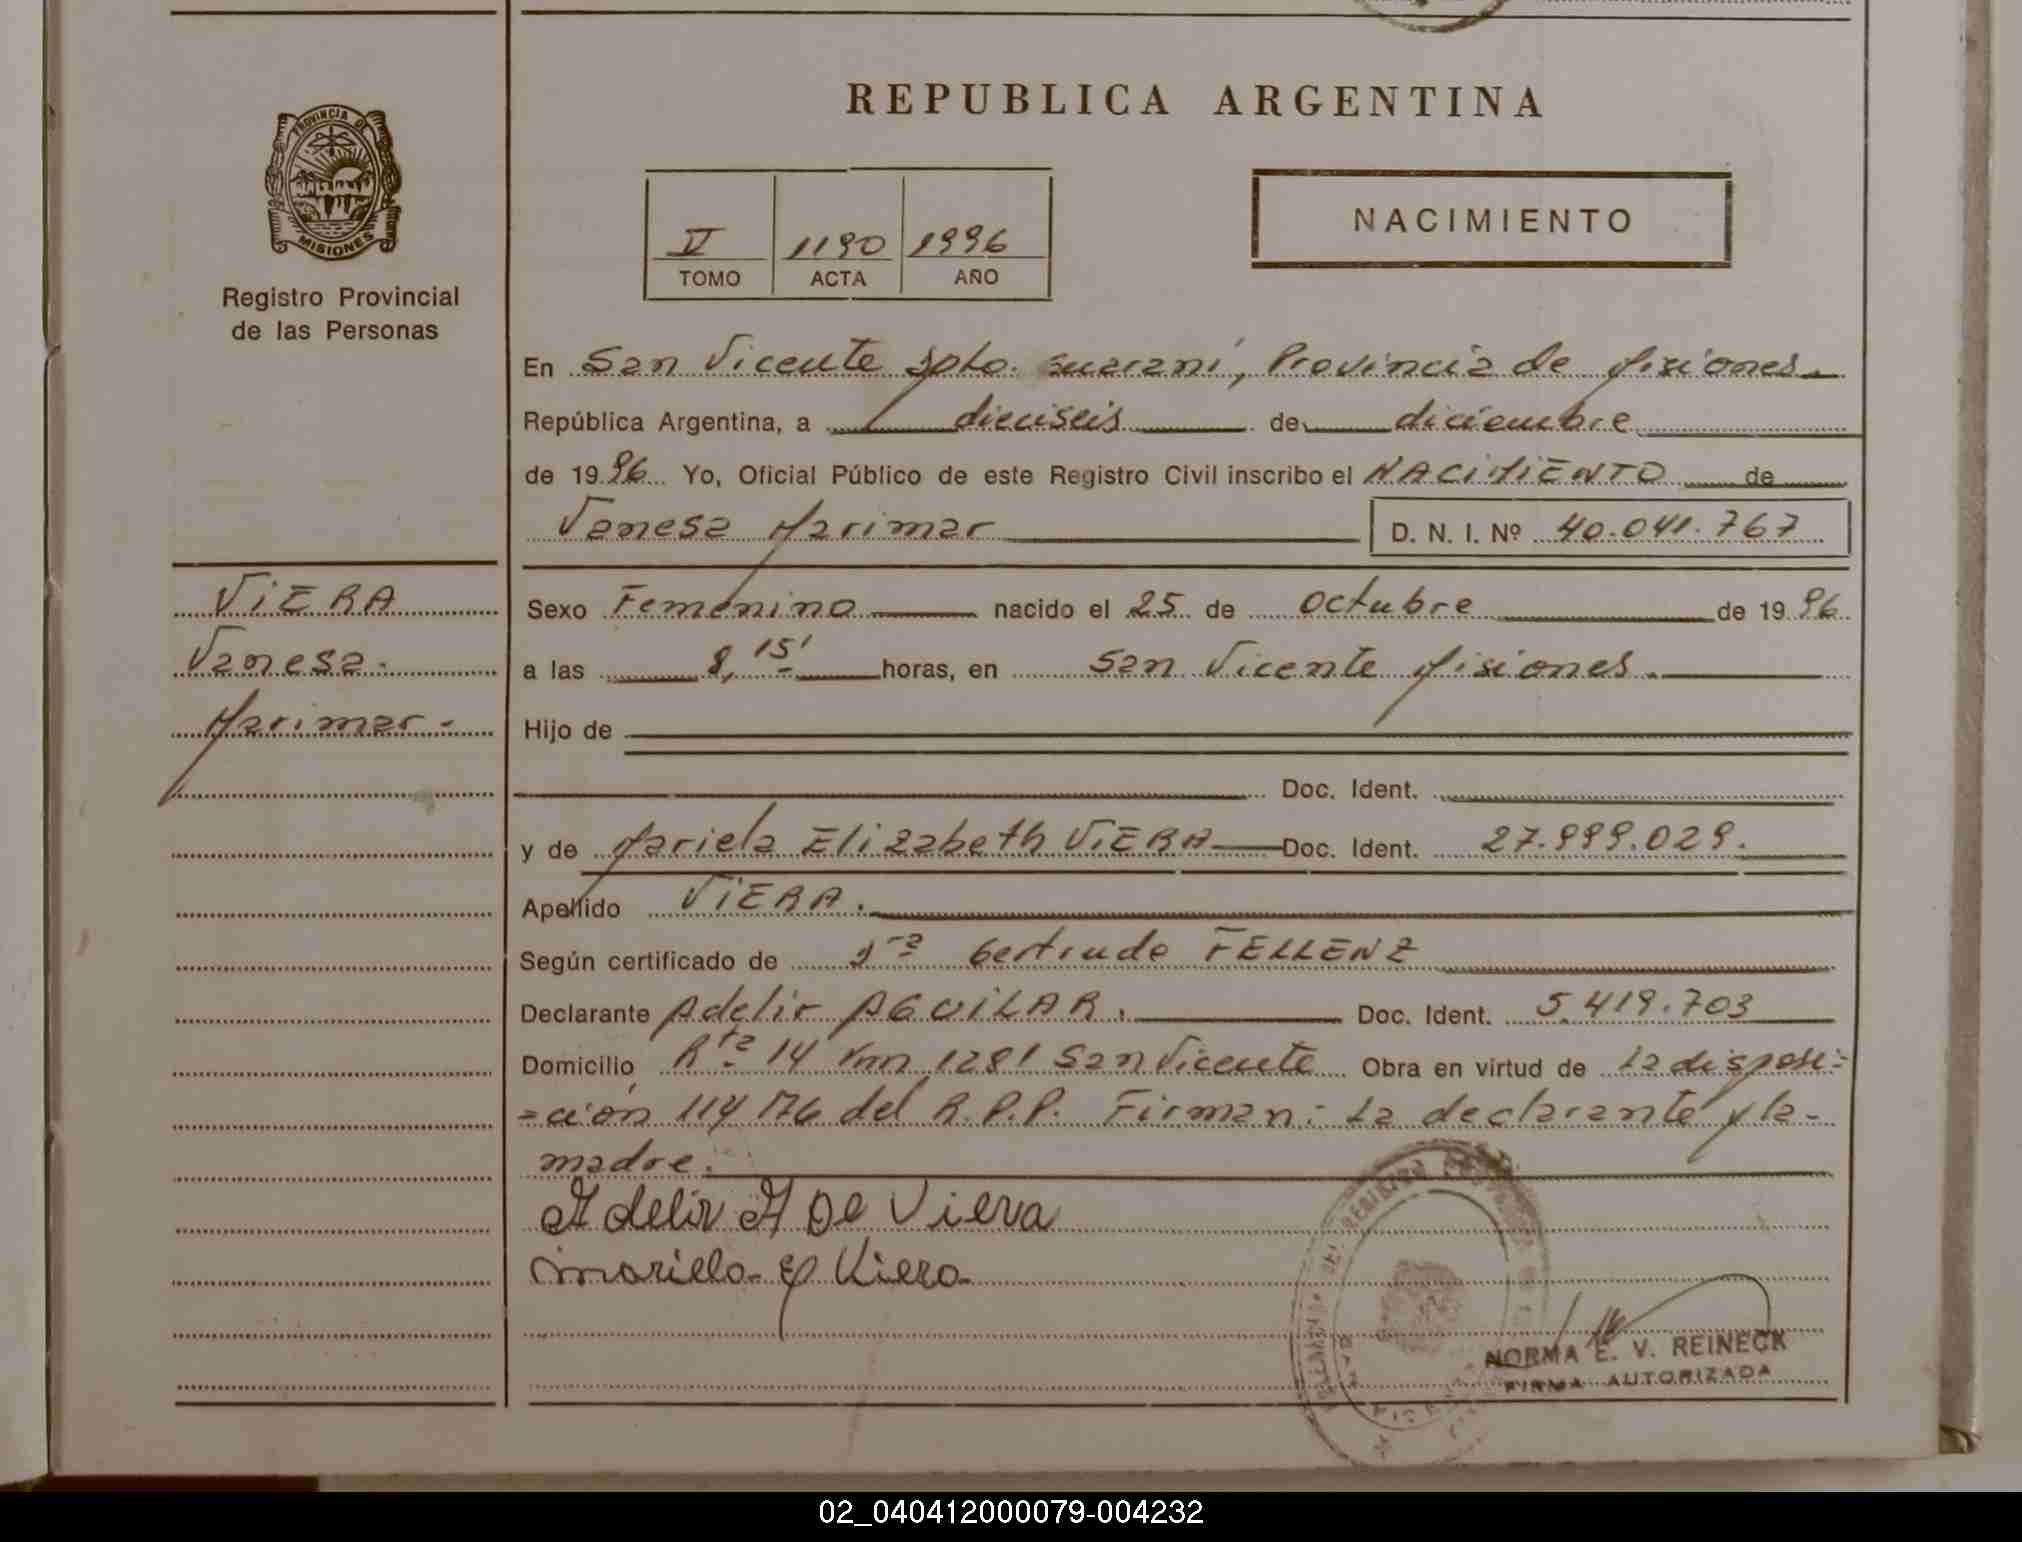 REPUBLICA ARGENTINA
PROVINCIA DE
MISIONES
Registro Provincial
de las Personas
V 1190 1996
TOMO ACTA AÑO
NACIMIENTO
En San Vicente Dpto. Guaraní, Provincia de Misiones.
República Argentina, a dieciseis de diciembre
de 1996 Yo, Oficial Público de este Registro Civil inscribo el NACIMIENTO de
Vanesa Marimar D. N. I. Nº 40.041.767
VIERA
Vanesa
Marimar-
Sexo Femenino nacido el 25 de octubre de 1996
a las 8,15' horas, en San Vicente Misiones.
Hijo de
Doc. Ident.
y de Mariela Elizabeth VIERA Doc. Ident. 27.999.029.
Apellido VIERA.
Según certificado de Gertrudo FELLENZ
Declarante Adelir AGUILAR. Doc. Ident. 5.419.703
Domicilio Rta 14 Km 1281 San Vicente Obra en virtud de La disposi-
=ción 114/76 del R.P.P. Firman: La declarante y la-
madre.
Adelir A De Viera
Mariela E Viera
NORMA E. V. REINECK
FIRMA AUTORIZADA
02_040412000079-004232